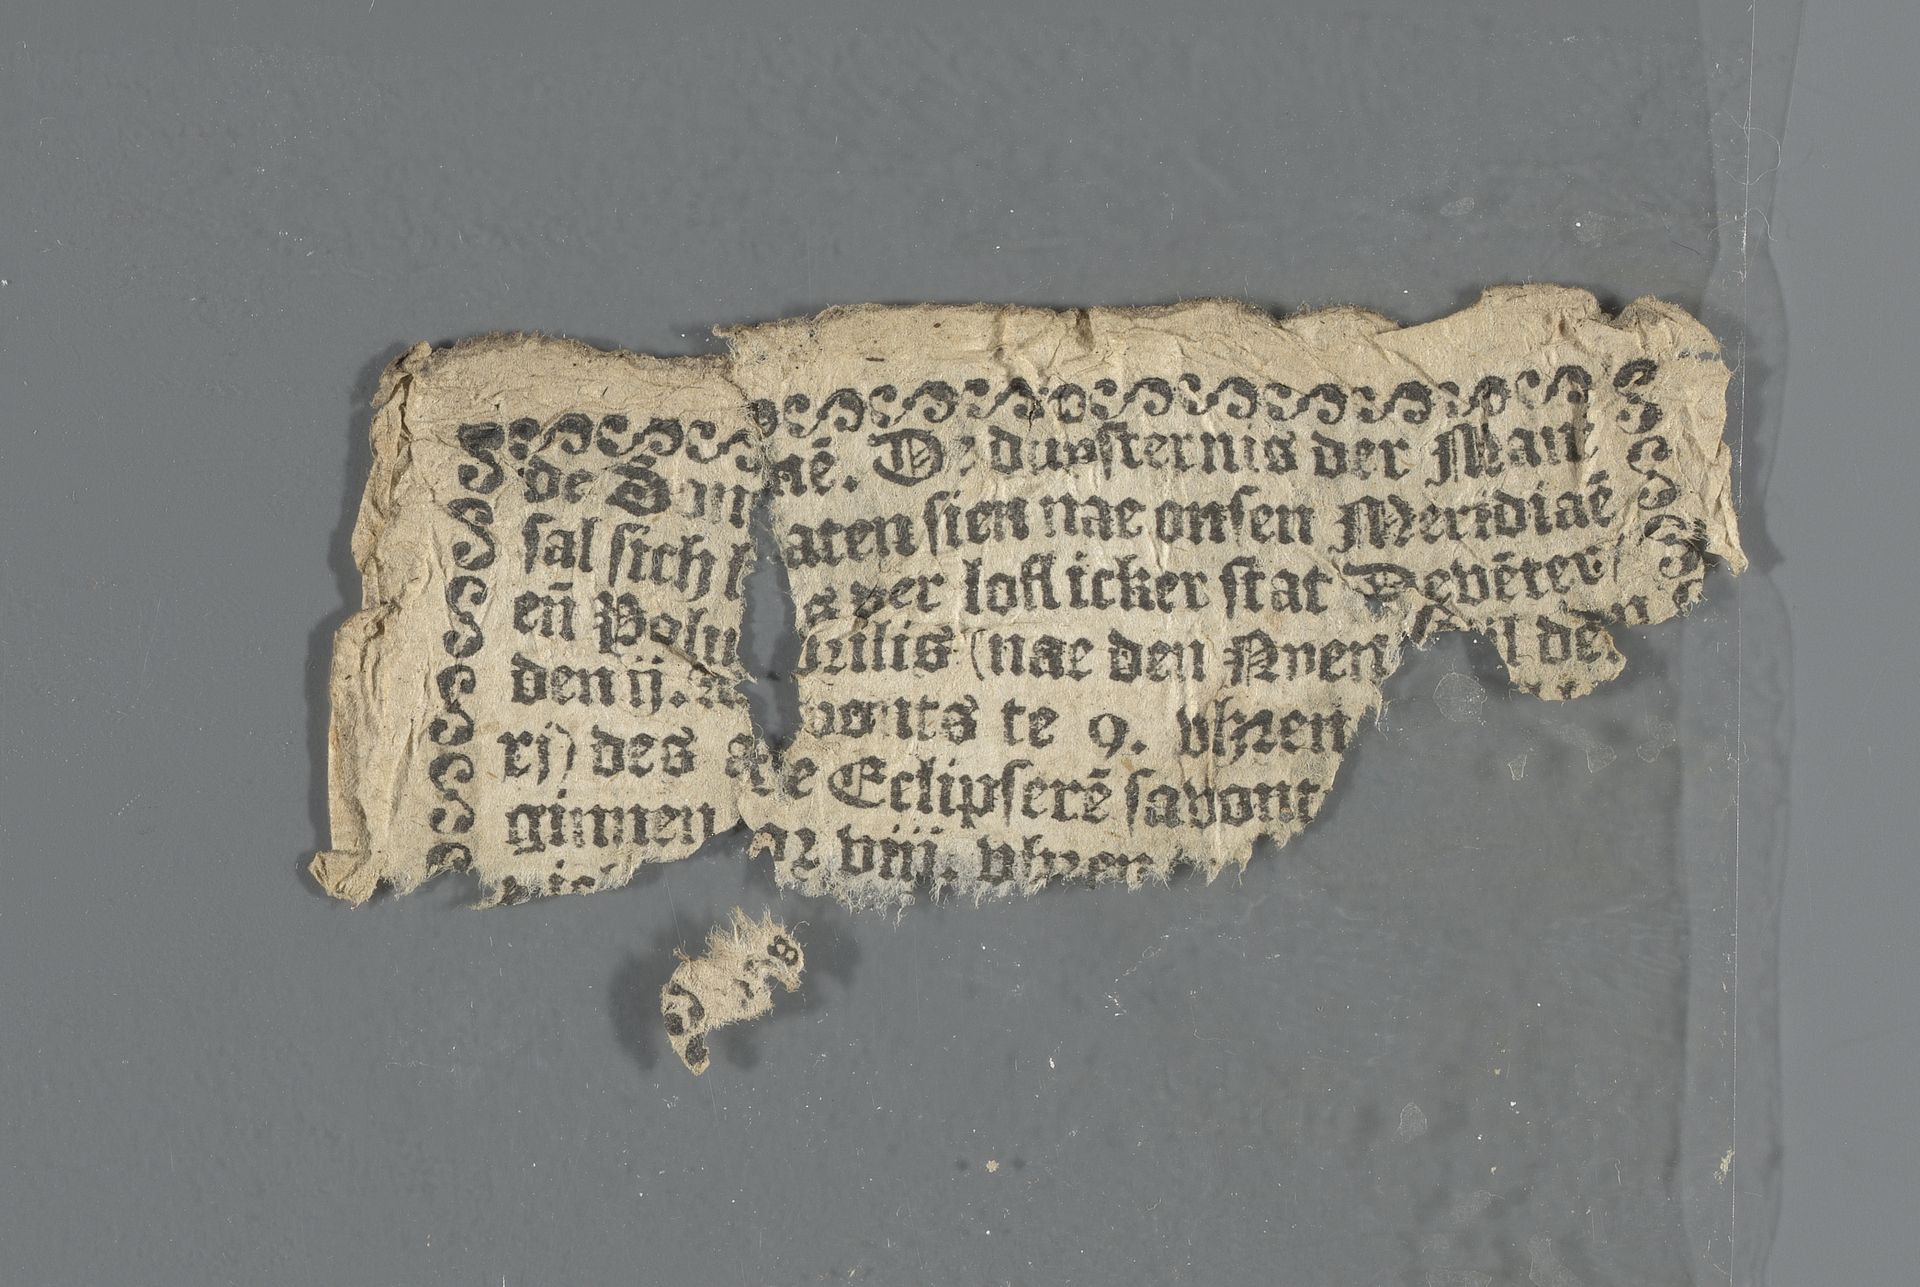 de Sonnaē. De duysternis der Mant
sal sich laten sien nae onsen Meridiaē
eñ Polu s der loflicker stat Devēter
den ij. Aprilis (nae den Nyen stil de
rij) des avonts te 9. vhren
ginnen te Eclipserē savont
viij. vhren